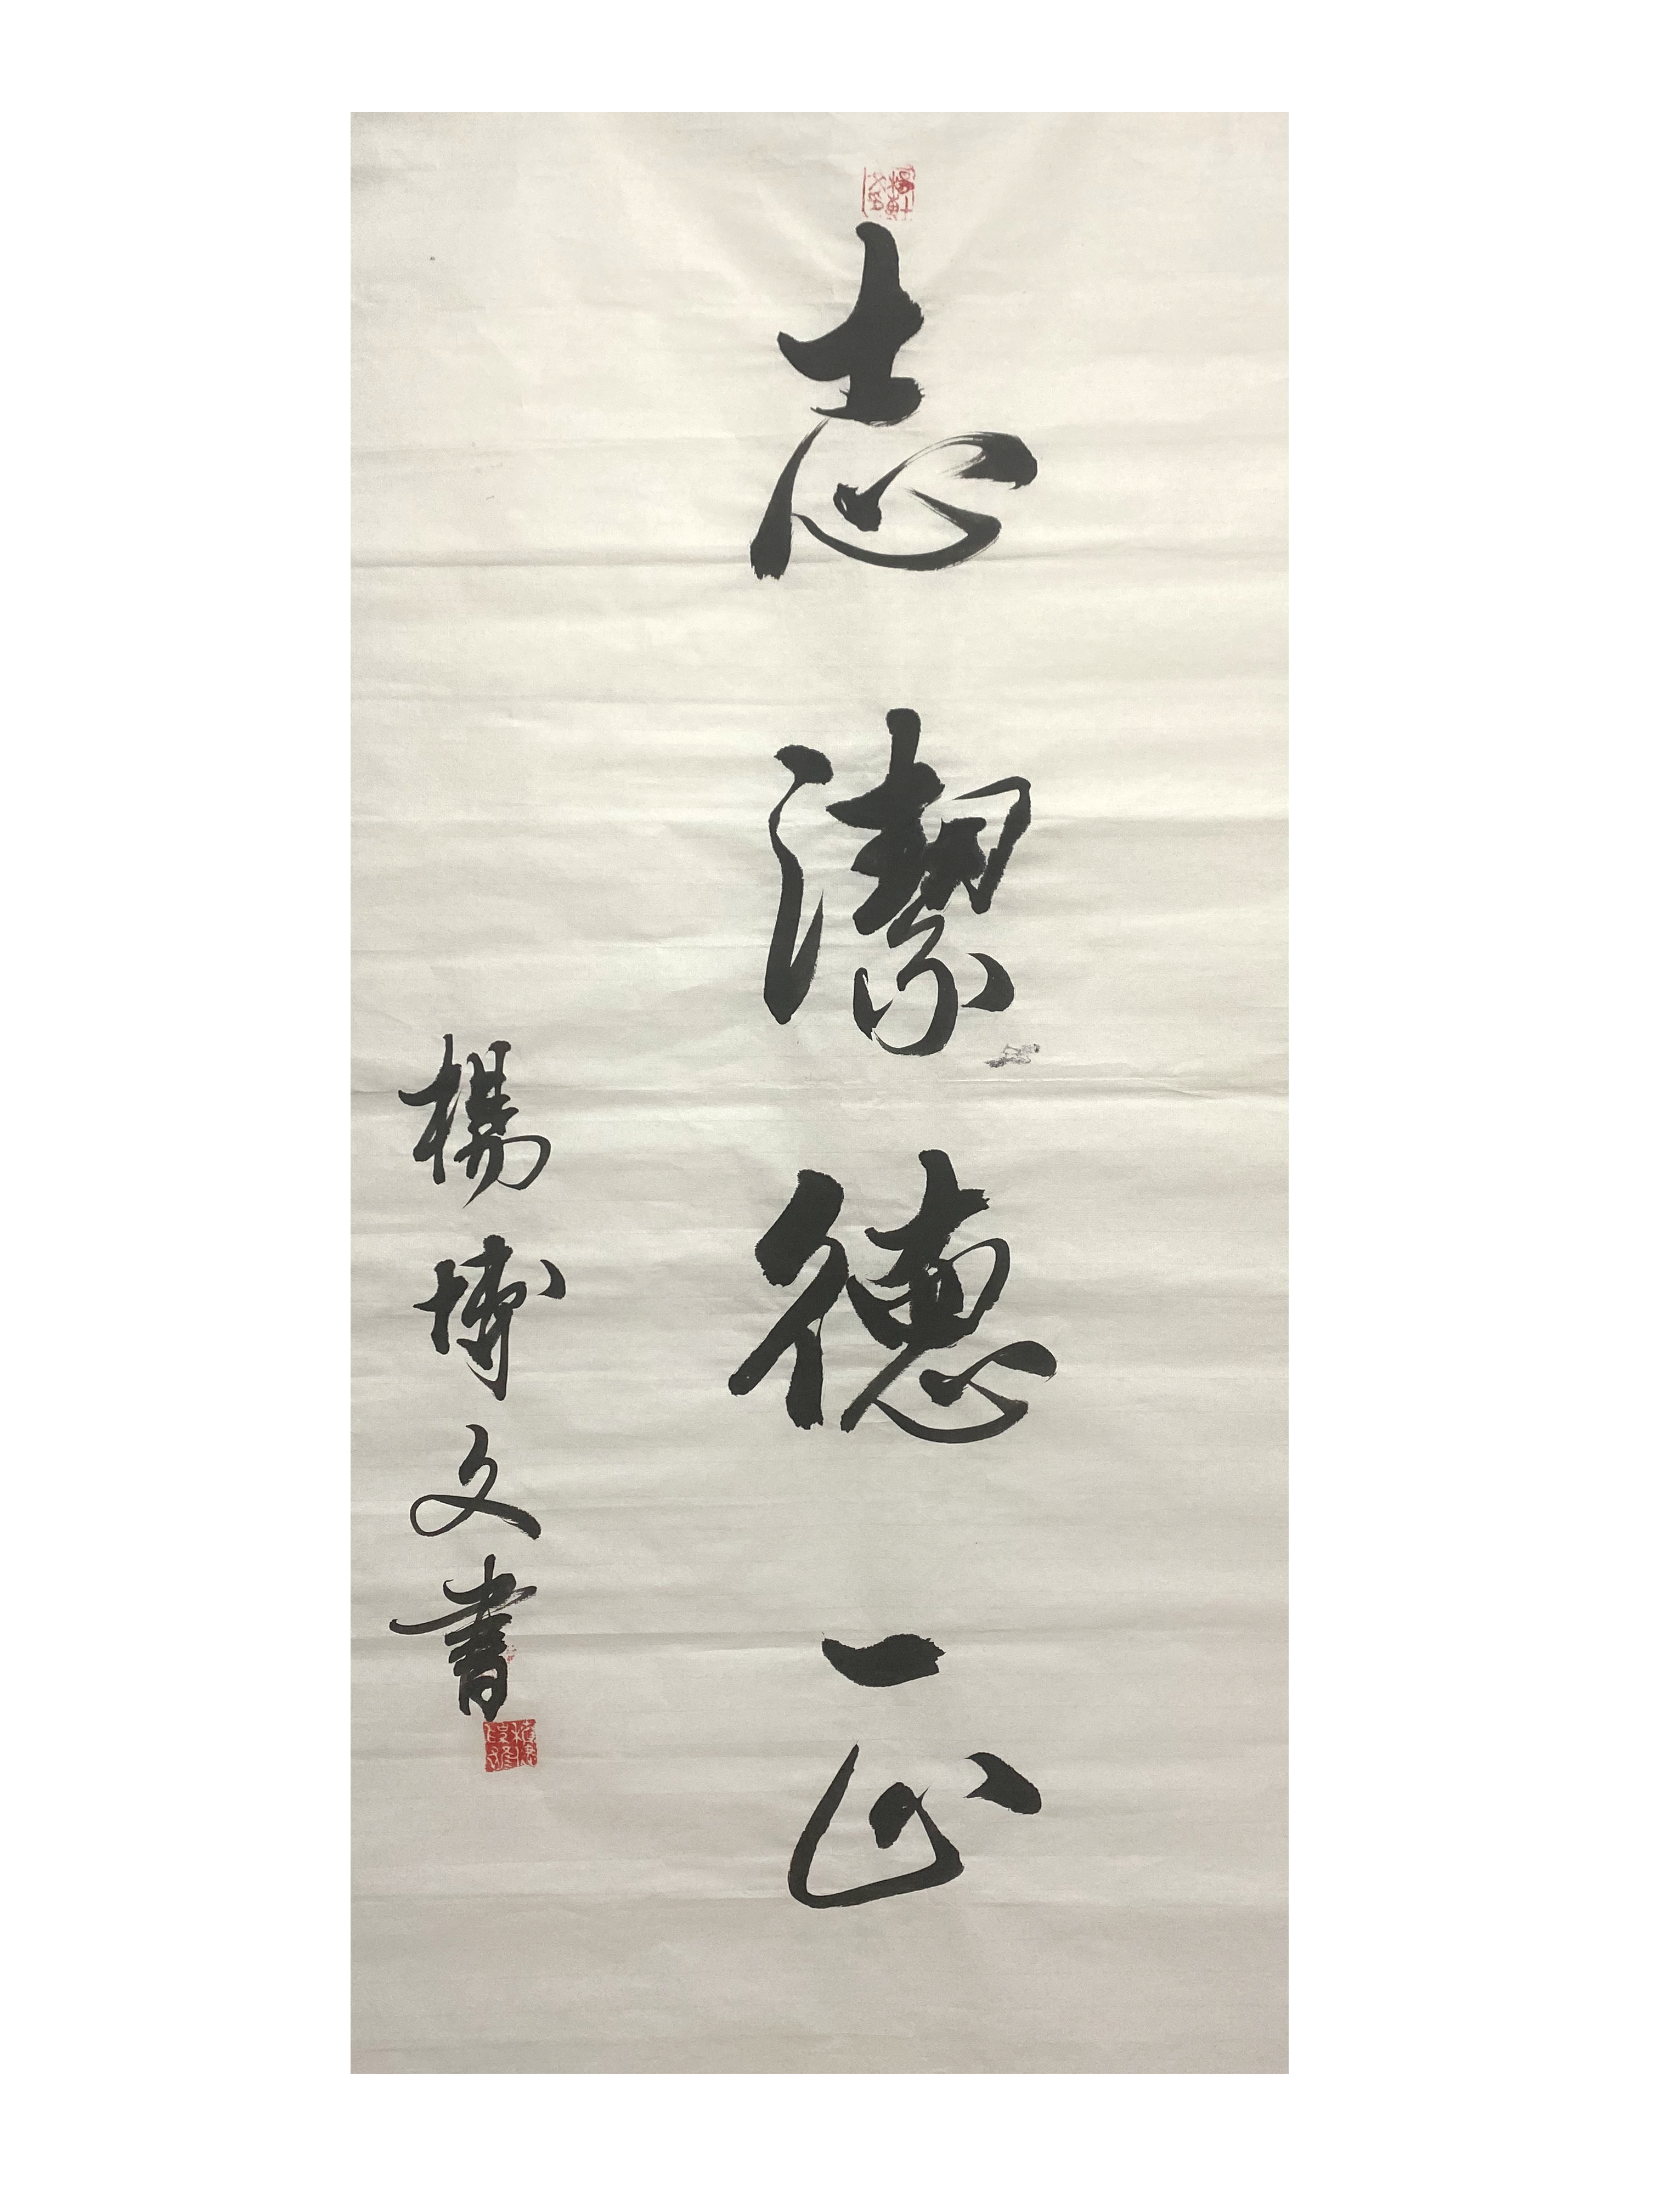 志潔德正
楊博文書